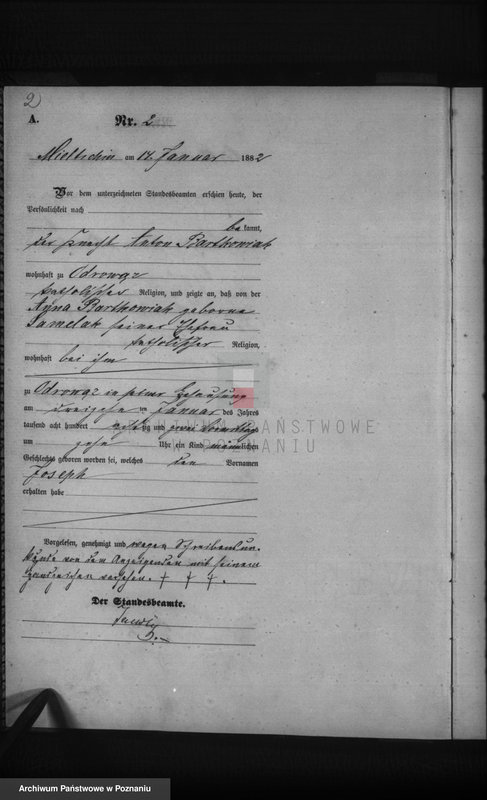 2)
A.
Nr. 2
Mieltschin am 14 Januar 1882
Vor dem unterzeichneten Standesbeamten erschien heute, der
Persönlichkeit nach
bekannt,
der Knecht Anton Bartkowiak
wohnhaft zu Odrowąz
katholischer Religion, und zeigte an, daß von der
Anna Bartkowiak geborene
Samelak seiner Ehefrau
katholischer Religion,
wohnhaft bei ihm
zu Odrowąz in seiner Behausung
am dreizehn ten Januar des Jahres
tausend acht hundert achtzig und zwei Vormittags
um zehn Uhr ein Kind männlichen
Geschlechts geboren worden sei, welches den Vornamen
Joseph
erhalten habe
Vorgelesen, genehmigt und wegen Schreibensun-
kunde von dem Anzeigenden mit seinem
Handzeichen versehen. † † †.
Der Standesbeamte.
ARCHIWUM PAŃSTWOWE
W POZNANIU
Archiwum Państwowe w Poznaniu